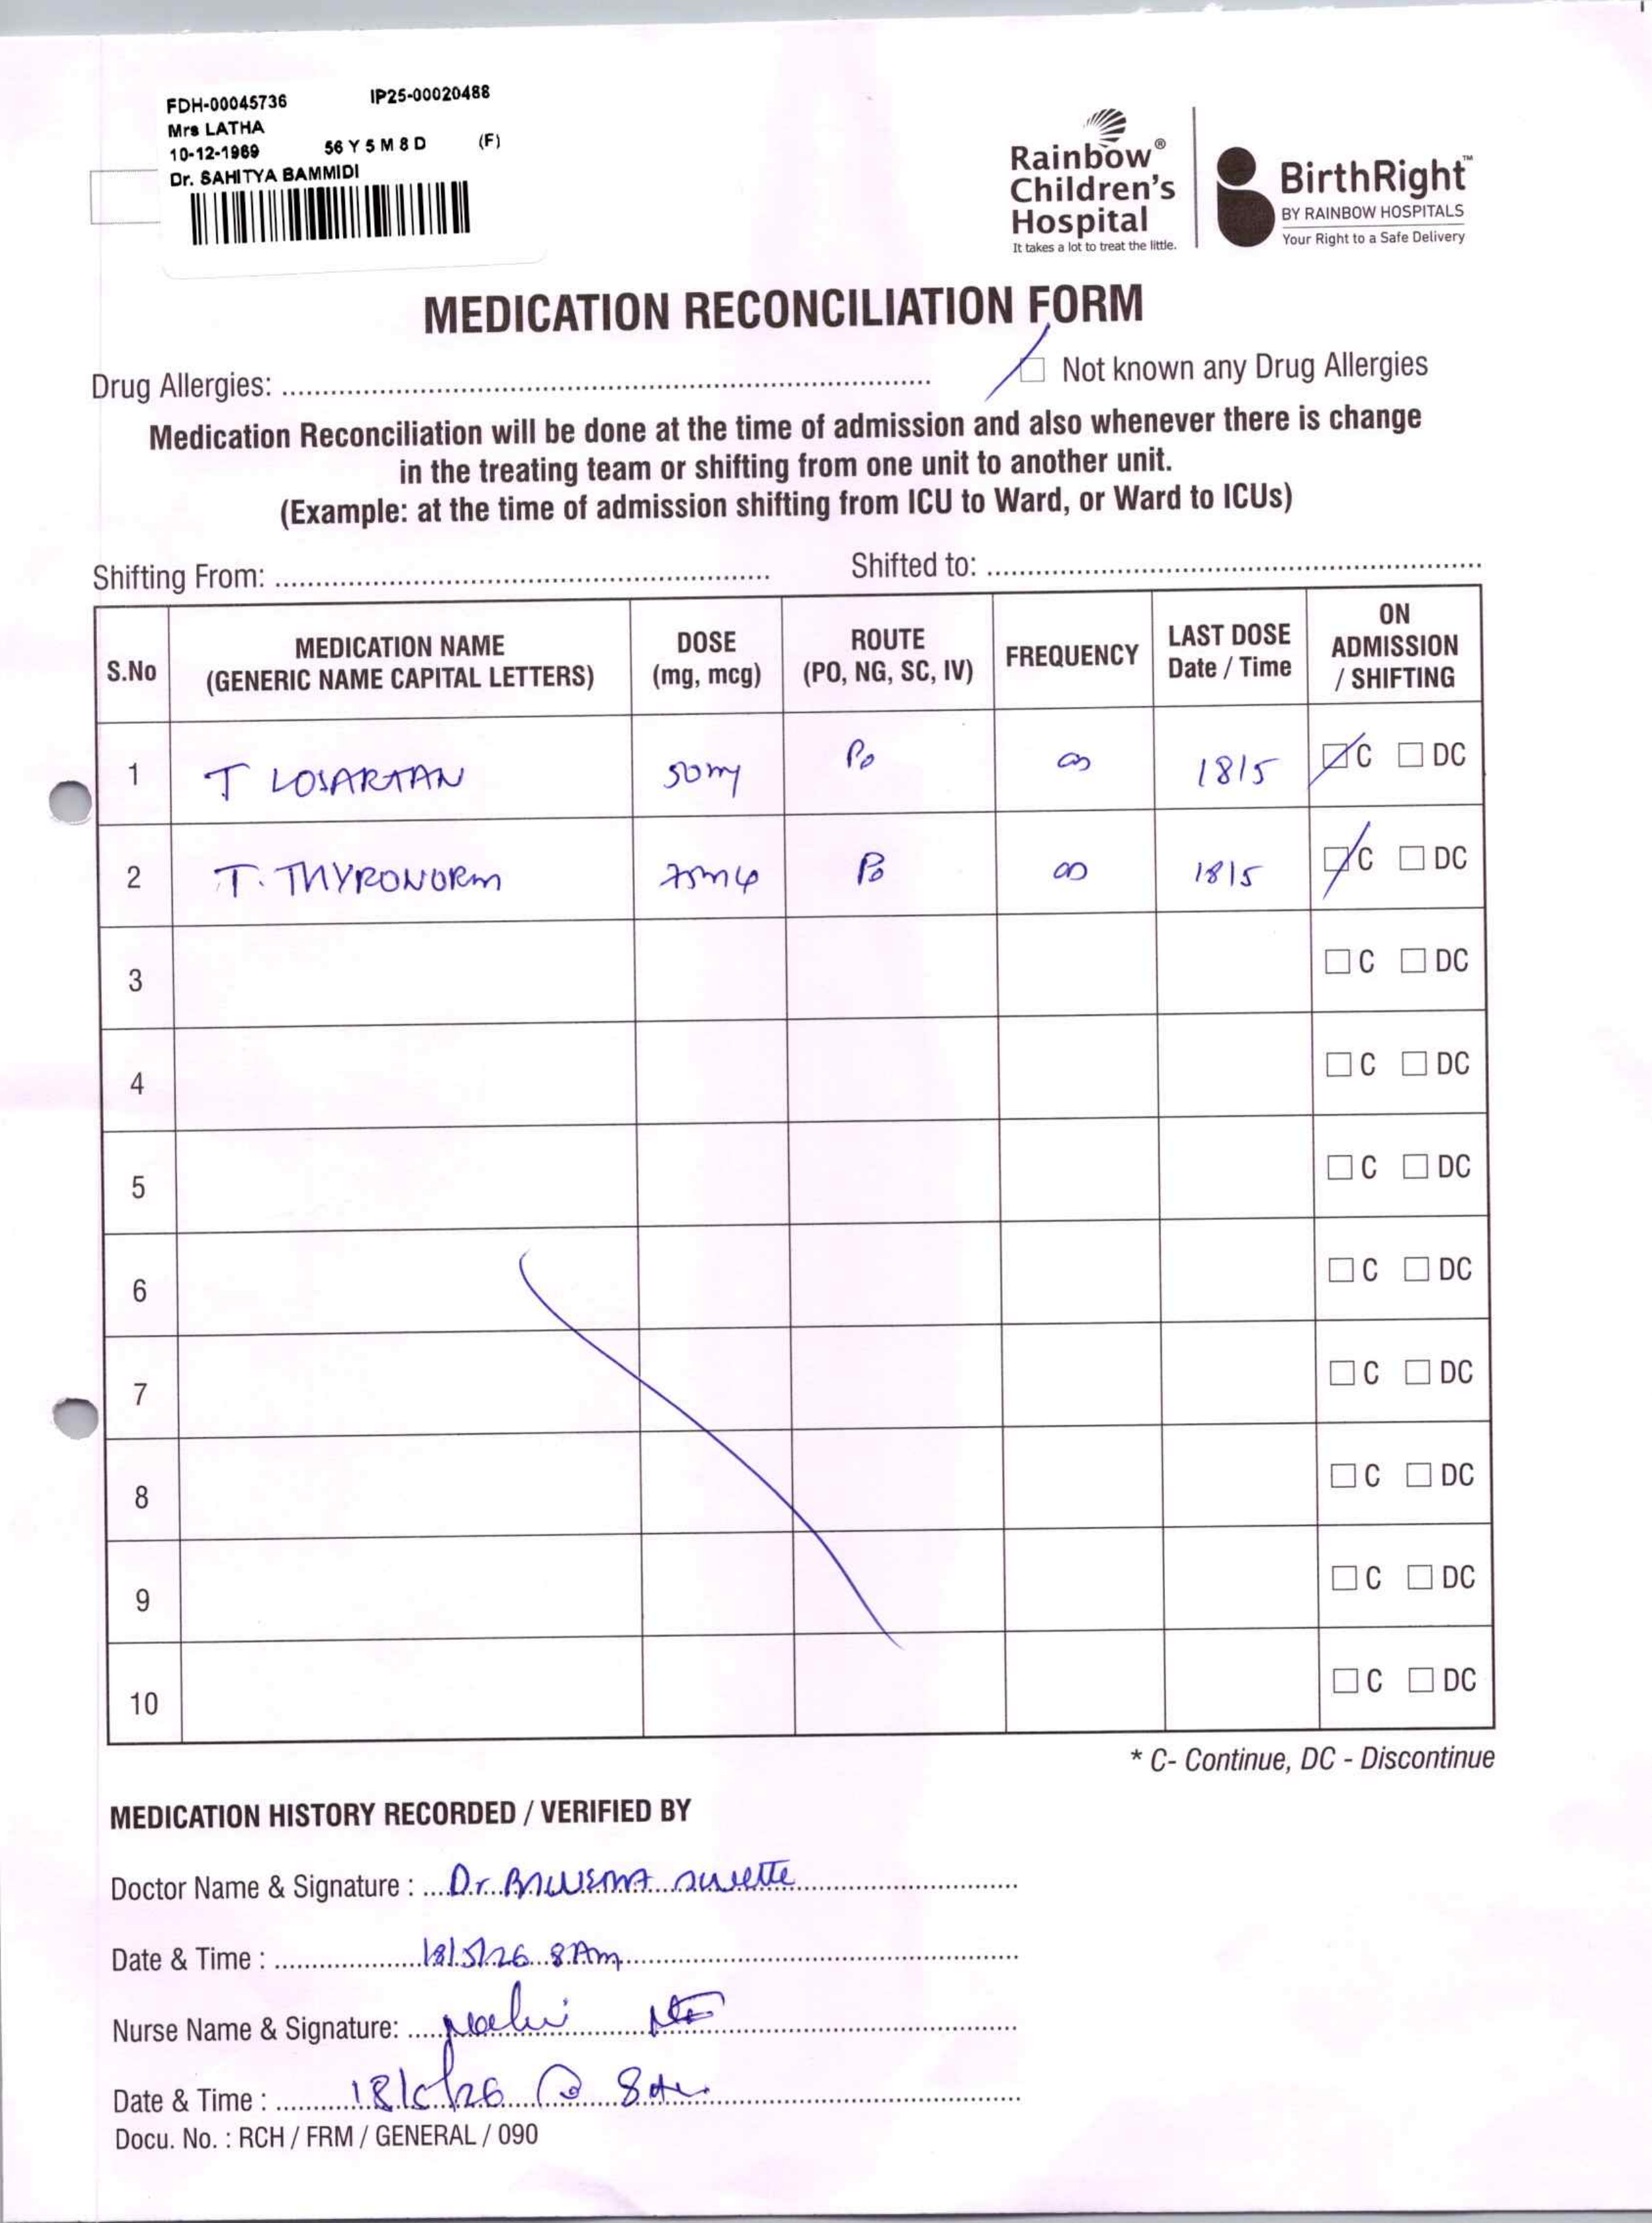 FDH-00045736 IP25-00020488
Mrs LATHA
10-12-1969 56 Y 5 M 8 D (F)
Dr. SAHITYA BAMMIDI
Rainbow® Children's Hospital
It takes a lot to treat the little.
BirthRight™
BY RAINBOW HOSPITALS
Your Right to a Safe Delivery
MEDICATION RECONCILIATION FORM
Drug Allergies: ☐ Not known any Drug Allergies
Medication Reconciliation will be done at the time of admission and also whenever there is change
in the treating team or shifting from one unit to another unit.
(Example: at the time of admission shifting from ICU to Ward, or Ward to ICUs)
Shifting From: Shifted to:
S.No MEDICATION NAME (GENERIC NAME CAPITAL LETTERS) DOSE (mg, mcg) ROUTE (PO, NG, SC, IV) FREQUENCY LAST DOSE Date / Time ON ADMISSION / SHIFTING
1 T LOSARTAN 50mg Po 18/5 C DC
2 T. THYRONORM Po 18/5 C DC
3 C DC
4 C DC
5 C DC
6 C DC
7 C DC
8 C DC
9 C DC
10 C DC
* C- Continue, DC - Discontinue
MEDICATION HISTORY RECORDED / VERIFIED BY
Doctor Name & Signature : Dr.
Date & Time : 18/5/26 8 Am
Nurse Name & Signature:
Date & Time : 18/5/26 @ 8
Docu. No. : RCH / FRM / GENERAL / 090